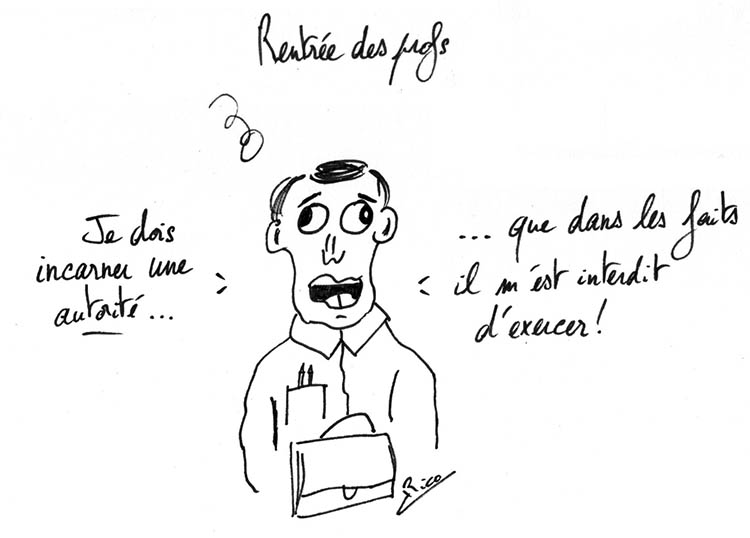 Rentrée des profs
Je dois
incarner une
autorité...
... que dans les faits
il m'est interdit
d'exercer!
Rico